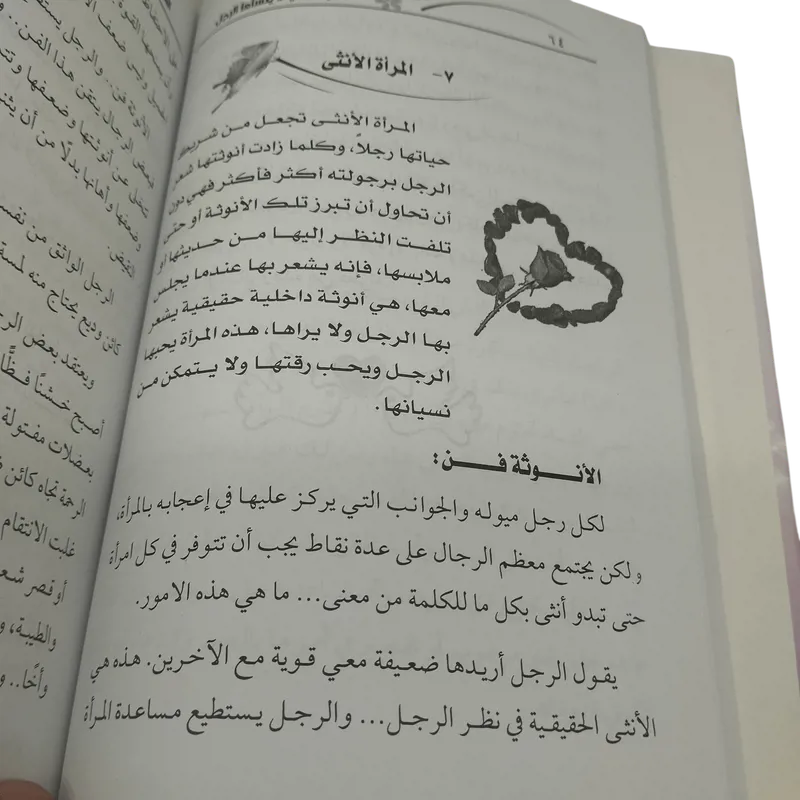 ٦٤
٧- المرأة الأنثى
المرأة الأنثى تجعل من شريك
حياتها رجلاً، وكلما زادت أنوثتها شعر
الرجل برجولته أكثر فأكثر فهي دون
أن تحاول أن تبرز تلك الأنوثة أو حتى
تلفت النظر إليها من حديثها أو
ملابسها، فإنه يشعر بها عندما يجلس
معها، هي أنوثة داخلية حقيقية يشعر
بها الرجل ولا يراها، هذه المرأة يحبها
الرجل ويحب رقتها ولا يتمكن من
نسيانها.
الأنوثة فن:
لكل رجل ميوله والجوانب التي يركز عليها في إعجابه بالمرأة،
ولكن يجتمع معظم الرجال على عدة نقاط يجب أن تتوفر في كل امرأة
حتى تبدو أنثى بكل ما للكلمة من معنى... ما هي هذه الامور.
يقول الرجل أريدها ضعيفة معي قوية مع الآخرين. هذه هي
الأنثى الحقيقية في نظر الرجل... والرجل يستطيع مساعدة المرأة
الأنوثة فن.. والرجل
فبعض الرجال يتقن هذا الفن..
تتخلى عن أنوثتها وضعفها و
وضعفها وأهانها بدلًا من أن
الرجل الواثق من نفسه
كائن وديع يحتاج منه لمسة
ويعتقد بعض الر
أصبح خشنًا فظًّا
بعضلات مفتولة
الرحمة تجاه كائن
غلبت الانتقام
أو قصر شع
والطيبة، و
وأخًا.. و